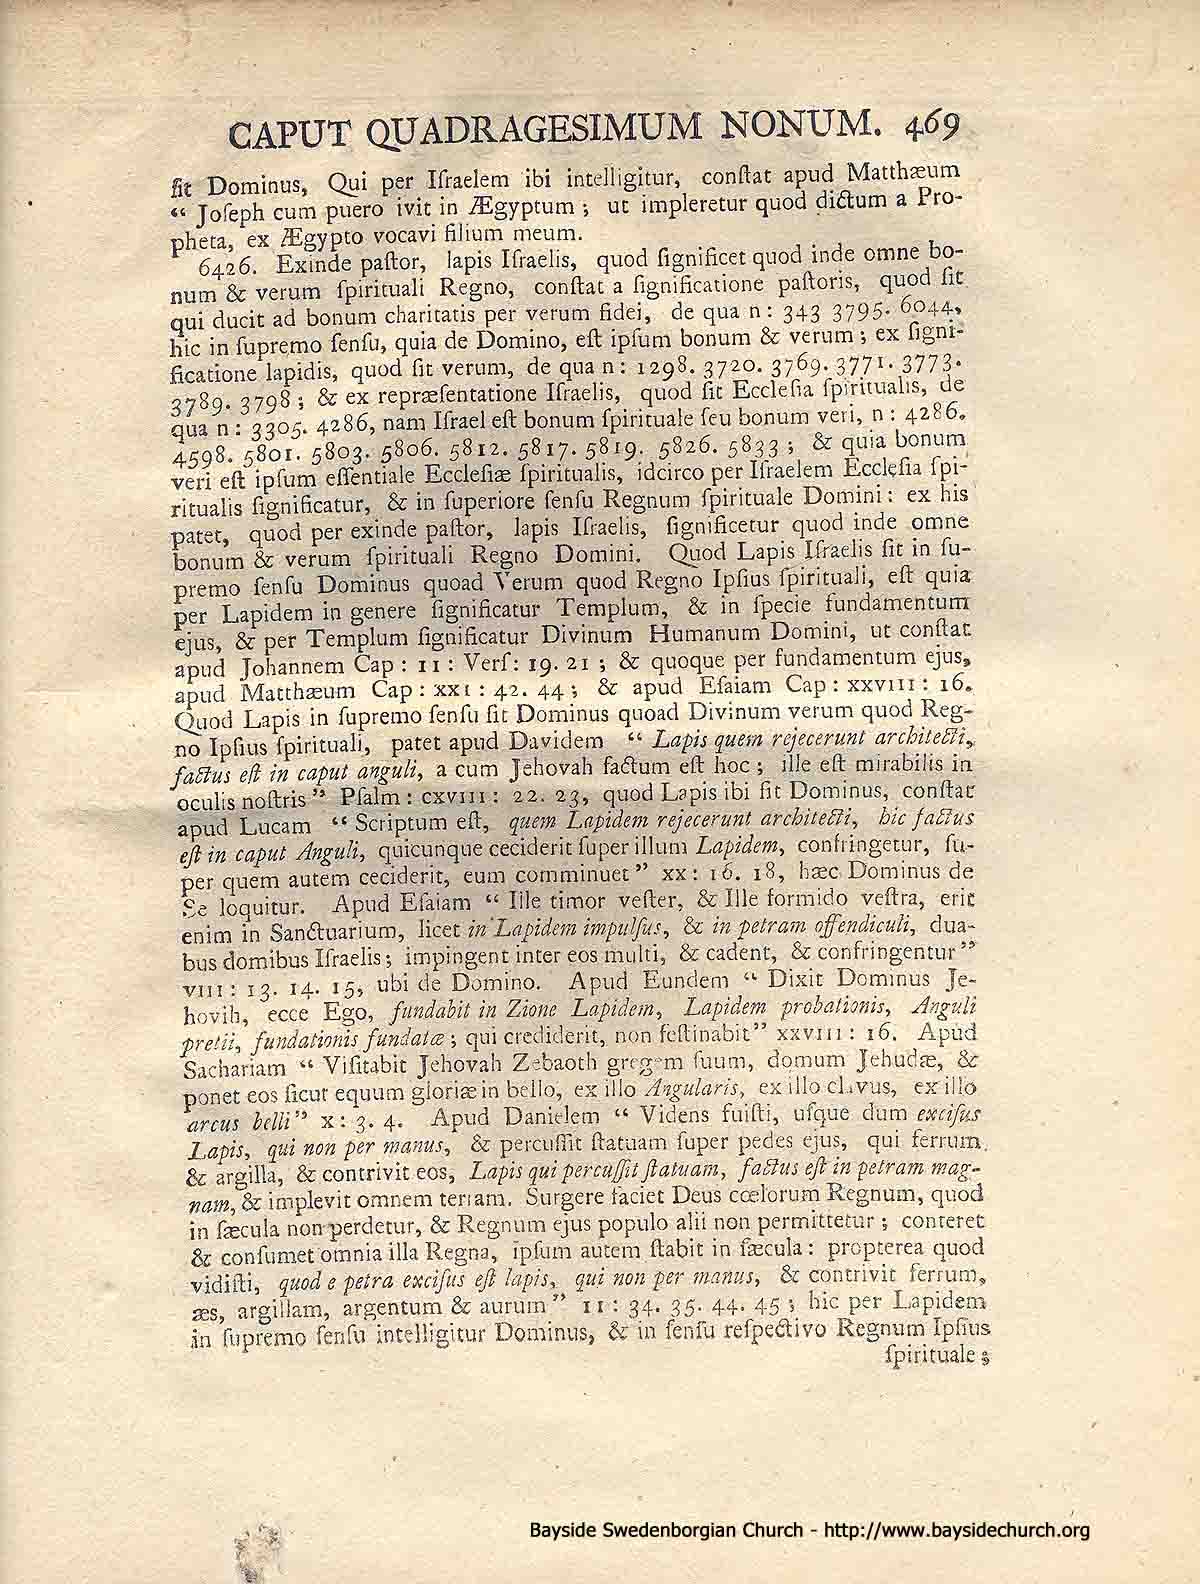 CAPUT QUADRAGESIMUM NONUM. 469
ſit Dominus, Qui per Iſraelem ibi intelligitur, conſtat apud Matthæum
“ Joſeph cum puero ivit in Ægyptum ; ut impleretur quod dictum a Pro-
pheta, ex Ægypto vocavi filium meum.
6426. Exinde paſtor, lapis Iſraelis, quod ſignificet quod inde omne bo-
num & verum ſpirituali Regno, conſtat a ſignificatione paſtoris, quod ſit
qui ducit ad bonum charitatis per verum fidei, de qua n : 343 3795. 6044,
hic in ſupremo ſenſu, quia de Domino, eſt ipſum bonum & verum ; ex ſigni-
ficatione lapidis, quod ſit verum, de qua n : 1298. 3720. 3769. 3771. 3773.
3789. 3798 ; & ex repræſentatione Iſraelis, quod ſit Eccleſia ſpiritualis, de
qua n : 3305. 4286, nam Iſrael eſt bonum ſpirituale ſeu bonum veri, n : 4286.
4598. 5801. 5803. 5806. 5812. 5817. 5819. 5826. 5833 ; & quia bonum
veri eſt ipſum eſſentiale Eccleſiæ ſpiritualis, idcirco per Iſraelem Eccleſia ſpi-
ritualis ſignificatur, & in ſuperiore ſenſu Regnum ſpirituale Domini : ex his
patet, quod per exinde paſtor, lapis Iſraelis, ſignificetur quod inde omne
bonum & verum ſpirituali Regno Domini. Quod Lapis Iſraelis ſit in ſu-
premo ſenſu Dominus quoad Verum quod Regno Ipſius ſpirituali, eſt quia
per Lapidem in genere ſignificatur Templum, & in ſpecie fundamentum
ejus, & per Templum ſignificatur Divinum Humanum Domini, ut conſtat
apud Johannem Cap : 11 : Verſ : 19. 21 ; & quoque per fundamentum ejus,
apud Matthæum Cap : XXI : 42. 44 ; & apud Eſaiam Cap : XXVIII : 16.
Quod Lapis in ſupremo ſenſu ſit Dominus quoad Divinum verum quod Reg-
no Ipſius ſpirituali, patet apud Davidem “ Lapis quem rejecerunt architecti,
factus eſt in caput anguli, a cum Jehovah factum eſt hoc ; ille eſt mirabilis in
oculis noſtris” Pſalm : CXVIII : 22. 23, quod Lapis ibi ſit Dominus, conſtat
apud Lucam “ Scriptum eſt, quem Lapidem rejecerunt architecti, hic factus
eſt in caput Anguli, quicunque ceciderit ſuper illum Lapidem, confringetur, ſu-
per quem autem ceciderit, eum comminuet” XX : 16. 18, hæc Dominus de
Se loquitur. Apud Eſaiam “ Ille timor veſter, & Ille formido veſtra, erit
enim in Sanctuarium, licet in Lapidem impulſus, & in petram offendiculi, dua-
bus domibus Iſraelis ; impingent inter eos multi, & cadent, & confringentur”
VIII : 13. 14. 15, ubi de Domino. Apud Eundem “ Dixit Dominus Je-
hovih, ecce Ego, fundabit in Zione Lapidem, Lapidem probationis, Anguli
pretii, fundationis fundatæ ; qui crediderit, non feſtinabit” XXVIII : 16. Apud
Sachariam “ Viſitabit Jehovah Zebaoth gregem ſuum, domum Jehudæ, &
ponet eos ſicut equum gloriæ in bello, ex illo Angularis, ex illo clavus, ex illo
arcus belli” X : 3. 4. Apud Danielem “ Videns fuiſti, uſque dum exciſus
Lapis, qui non per manus, & percuſſit ſtatuam ſuper pedes ejus, qui ferrum
& argilla, & contrivit eos, Lapis qui percuſſit ſtatuam, factus eſt in petram mag-
nam, & implevit omnem terram. Surgere faciet Deus cœlorum Regnum, quod
in ſæcula non perdetur, & Regnum ejus populo alii non permittetur ; conteret
& conſumet omnia illa Regna, ipſum autem ſtabit in ſæcula : propterea quod
vidiſti, quod e petra exciſus eſt lapis, qui non per manus, & contrivit ferrum,
æs, argillam, argentum & aurum” 11 : 34. 35. 44. 45 ; hic per Lapidem
in ſupremo ſenſu intelligitur Dominus, & in ſenſu reſpectivo Regnum Ipſius
ſpirituale ;
Bayside Swedenborgian Church - http://www.baysidechurch.org